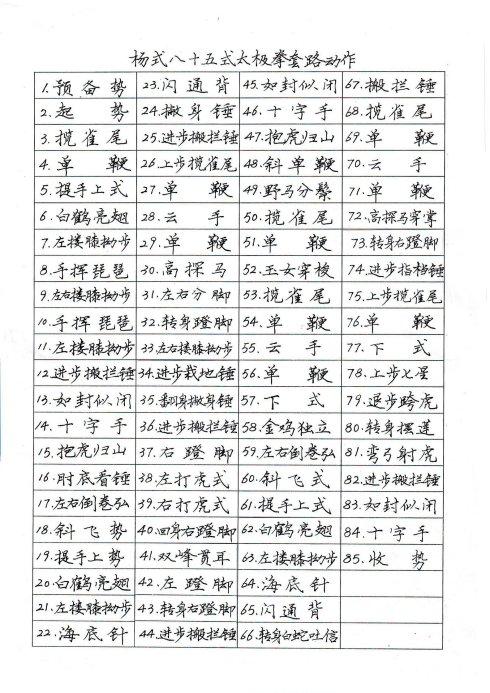 杨式八十五式太极拳套路动作
1.预备势
2.起势
3.揽雀尾
4.单鞭
5.提手上式
6.白鹤亮翅
7.左搂膝拗步
8.手挥琵琶
9.左右搂膝拗步
10.手挥琵琶
11.左搂膝拗步
12.进步搬拦锤
13.如封似闭
14.十字手
15.抱虎归山
16.肘底看锤
17.左右倒卷弘
18.斜飞势
19.提手上势
20.白鹤亮翅
21.左搂膝拗步
22.海底针
23.闪通背
24.撇身锤
25.进步搬拦锤
26.上步揽雀尾
27.单鞭
28.云手
29.单鞭
30.高探马
31.左右分脚
32.转身蹬脚
33.左右搂膝拗步
34.进步栽地锤
35.翻身撇身锤
36.进步搬拦锤
37.右蹬脚
38.左打虎式
39.右打虎式
40.回身右蹬脚
41.双峰贯耳
42.左蹬脚
43.转身右蹬脚
44.进步搬拦锤
45.如封似闭
46.十字手
47.抱虎归山
48.斜单鞭
49.野马分鬃
50.揽雀尾
51.单鞭
52.玉女穿梭
53.揽雀尾
54.单鞭
55.云手
56.单鞭
57.下式
58.金鸡独立
59.左右倒卷弘
60.斜飞式
61.提手上式
62.白鹤亮翅
63.左搂膝拗步
64.海底针
65.闪通背
66.转身白蛇吐信
67.搬拦锤
68.揽雀尾
69.单鞭
70.云手
71.单鞭
72.高探马穿掌
73.转身右蹬脚
74.进步指裆锤
75.上步揽雀尾
76.单鞭
77.下式
78.上步七星
79.退步跨虎
80.转身摆莲
81.弯弓射虎
82.进步搬拦锤
83.如封似闭
84.十字手
85.收势